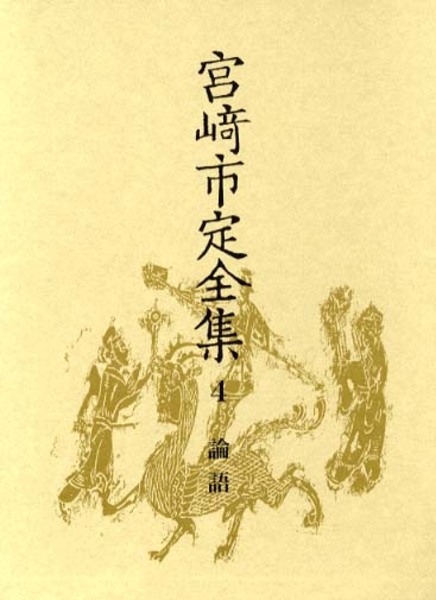 宮﨑市定全集
4
論語